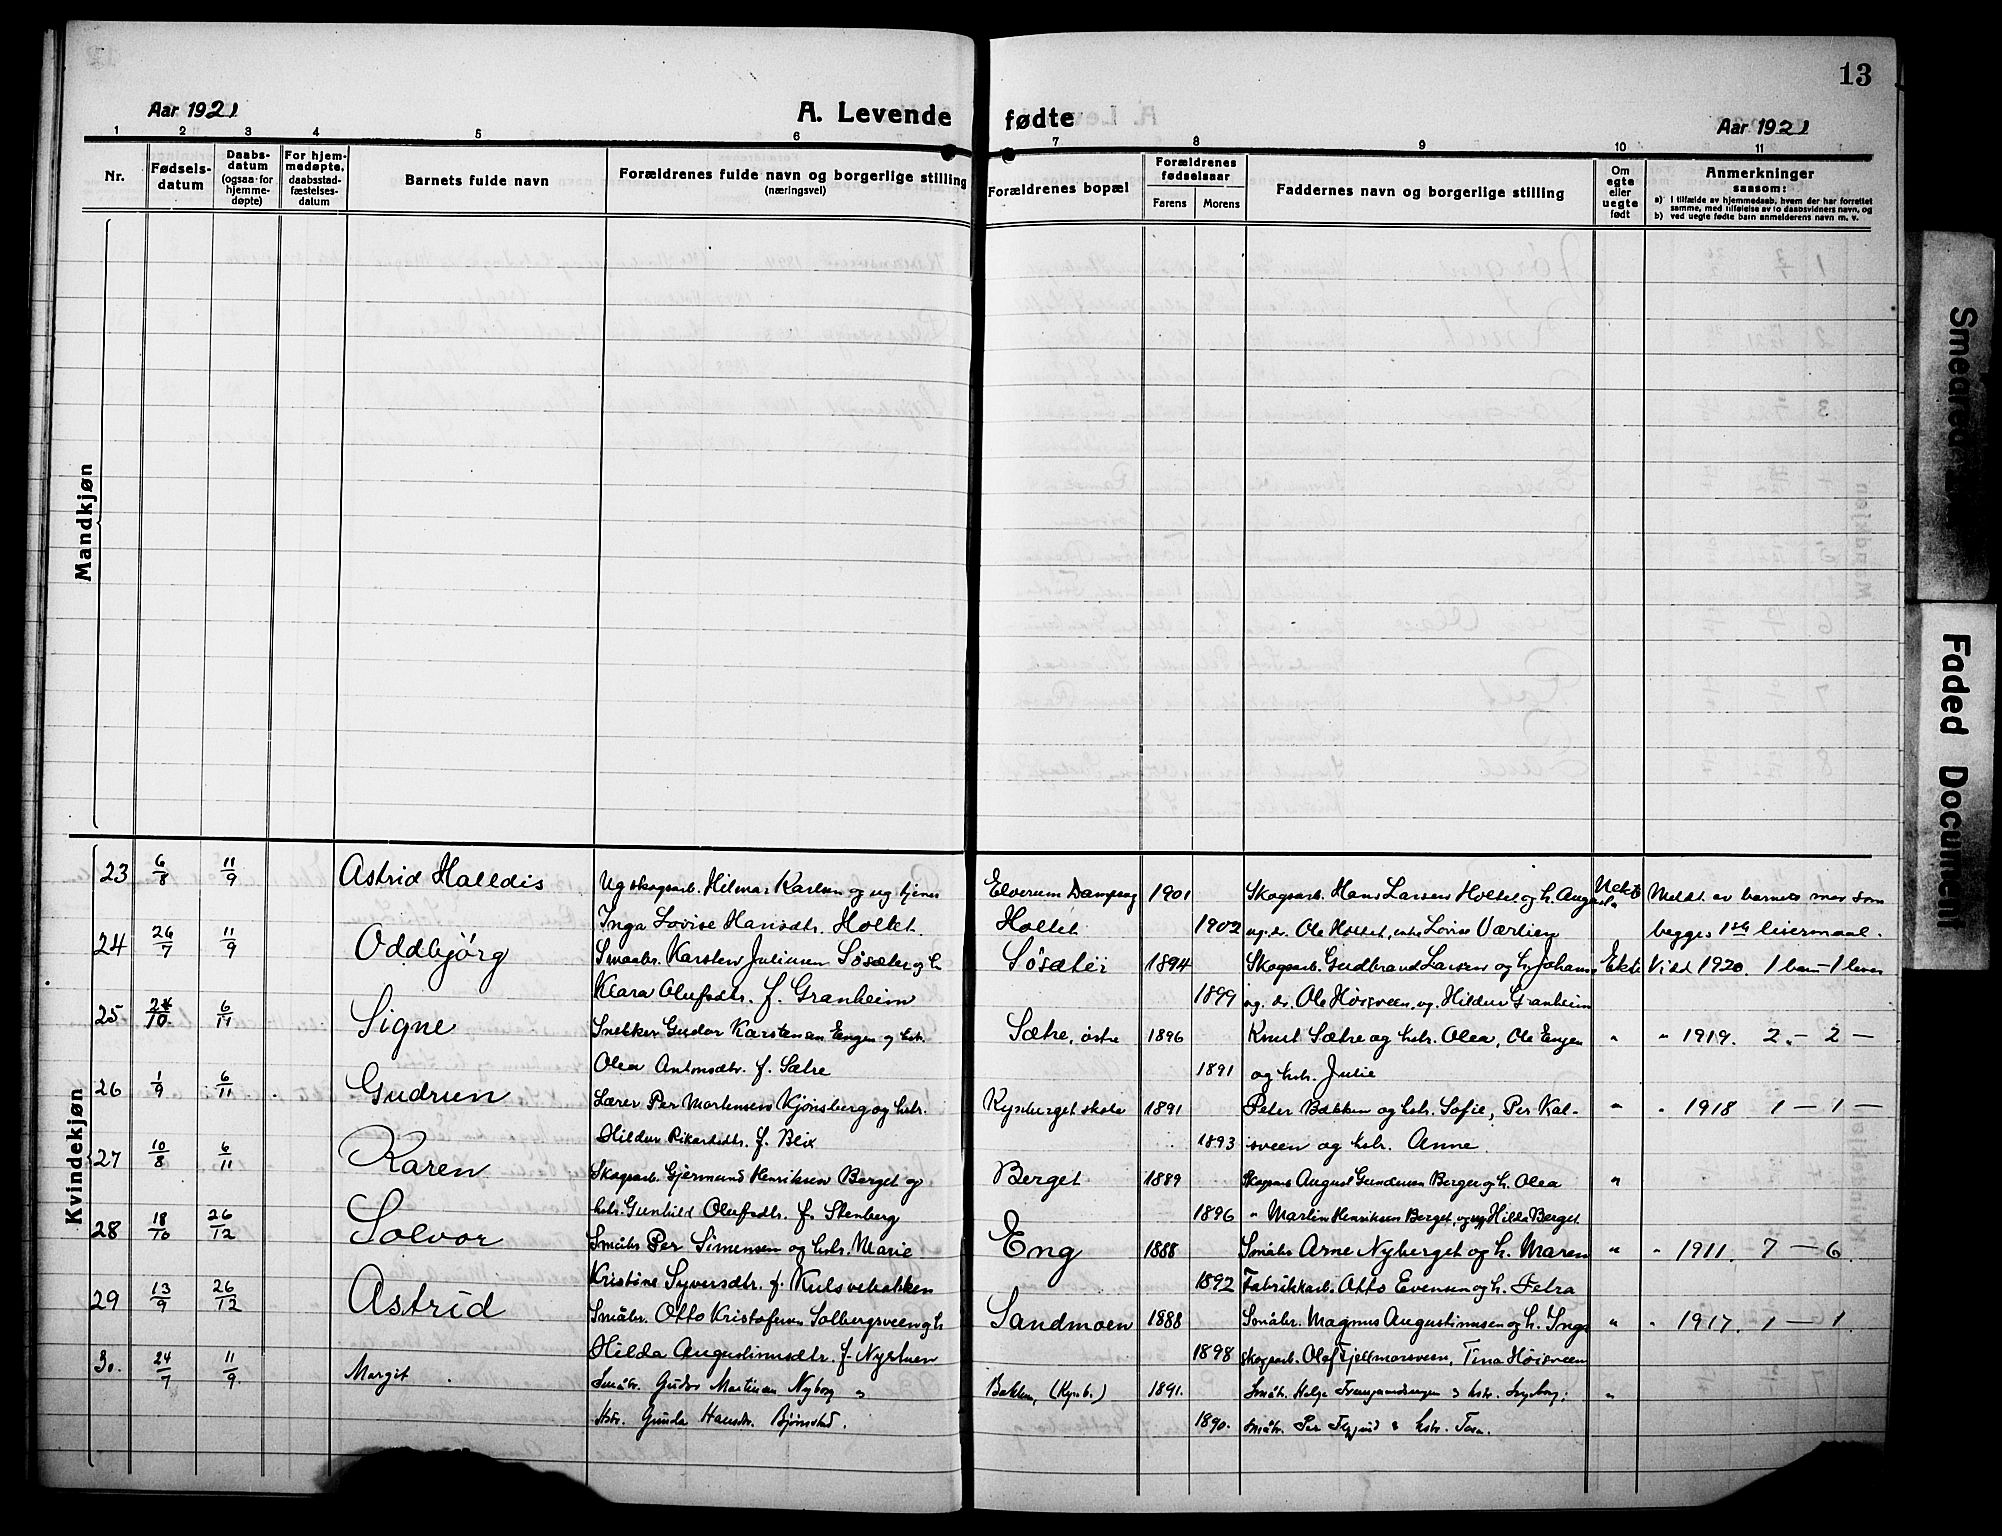 13
Aar 1921 A. Levende fødte Aar 1921
1 2 3 4 5 6 7 8 9 10 11
Nr. Fødsels-datum Daabs-datum (ogsaa for hjemme-døpte) For hjem-medøpte, daabsstad-fæstelses-datum Barnets fulde navn Forældrenes fulde navn og borgerlige stilling (næringsvei) Forældrenes bopæl Forældrenes fødselsaar Farens Morens Faddernes navn og borgerlige stilling Om egte eller uegte født Anmerkninger saasom:
a) I tilfælde av hjemmedaab, hvem der har forrettet samme, med tilføielse av to daabsvidners navn, og
b) ved uegte fødte barn anmelderens navn m. v.
Mandkjøn
Kvindekjøn
23 6/8 11/9 Astrid Halldis Ug skogsarb. Hilmar Karlsen og ug tjener Elverum Dampsag 1901 Skogsarb. Hans Larsen Holtet og h. Augusta Uekte Meldt av barnets mor som
Inga Lovise Hansdtr. Holtet. Holtet 1902 ug. dr. Ole Holtet, enke Lovise Værlien begges 1ste leiermaal.
24 26/7 11/9 Oddbjørg Smaabr. Karsten Juliussen Søsæter og h. Søsæter 1894 Skogsarb. Gudbrand Larsen og h. Johanne Ekte Vidd 1920. 1 barn - 1 lever
Klara Olufsdtr. f. Granheim 1899 ug. dr. Ole Høisveen, ug. Hildur Granheim
25 24/10 6/11 Signe Snekker Gudor Karstensen Engen og hstr. Sætre, østre 1896 Knut Sætre og hstr. Olea, Ole Engen " " 1919. 2 - 2 -
Olea Antonsdtr. f. Sætre 1891 og hstr. Julie
26 1/9 6/11 Gudrun Lærer Per Mortensen Kjønsberg og hstr. Kynberget skole 1891 Peter Bakken og hstr. Sofie, Per Kal- " " 1918 1 - 1 -
Hildur Rikardsdtr. f. Blix 1893 sveen og hstr. Anne
27 10/8 6/11 Karen Skogsarb. Gjermund Henriksen Berget og Berget 1889 Skogsarb August Gundersen Berger og h. Olea "
hstr. Gunhild Olufsdtr. f. Stenberg 1896 " Martin Henriksen Berget, og ug Hilda Berget
28 18/10 26/12 Solvor Småbr Per Simensen og hstr. Marie Eng 1888 Småbr Arne Nyberget og h. Maren " " 1911 7 - 6
Kristine Syversdtr. f. Kulsvebakken 1892 Fabrikkarb. Otto Evensen og h. Petra
29 13/9 26/12 Astrid Småbr. Otto Kristofersen Solbergsveen og h Sandmoen 1888 Småbr. Magnus Augustinussen og h. Inga " " 1917. 1 - 1.
Hilda Augustinusdtr. f. Nystuen 1898 skogsarb. Olaf Fjellmorsveen, Tina Høisveen
30. 24/7 11/9 Margit Småbr. Gudor Martinsen Nyborg og Bakken, (Kynb.) 1891. Småbr. Helge og hstr. Ingeborg; "
Hstr. Gunda Hansdtr. Bjørnstad. 1890. småbr. Per og hstr. Tora.
Smeared
Faded Document